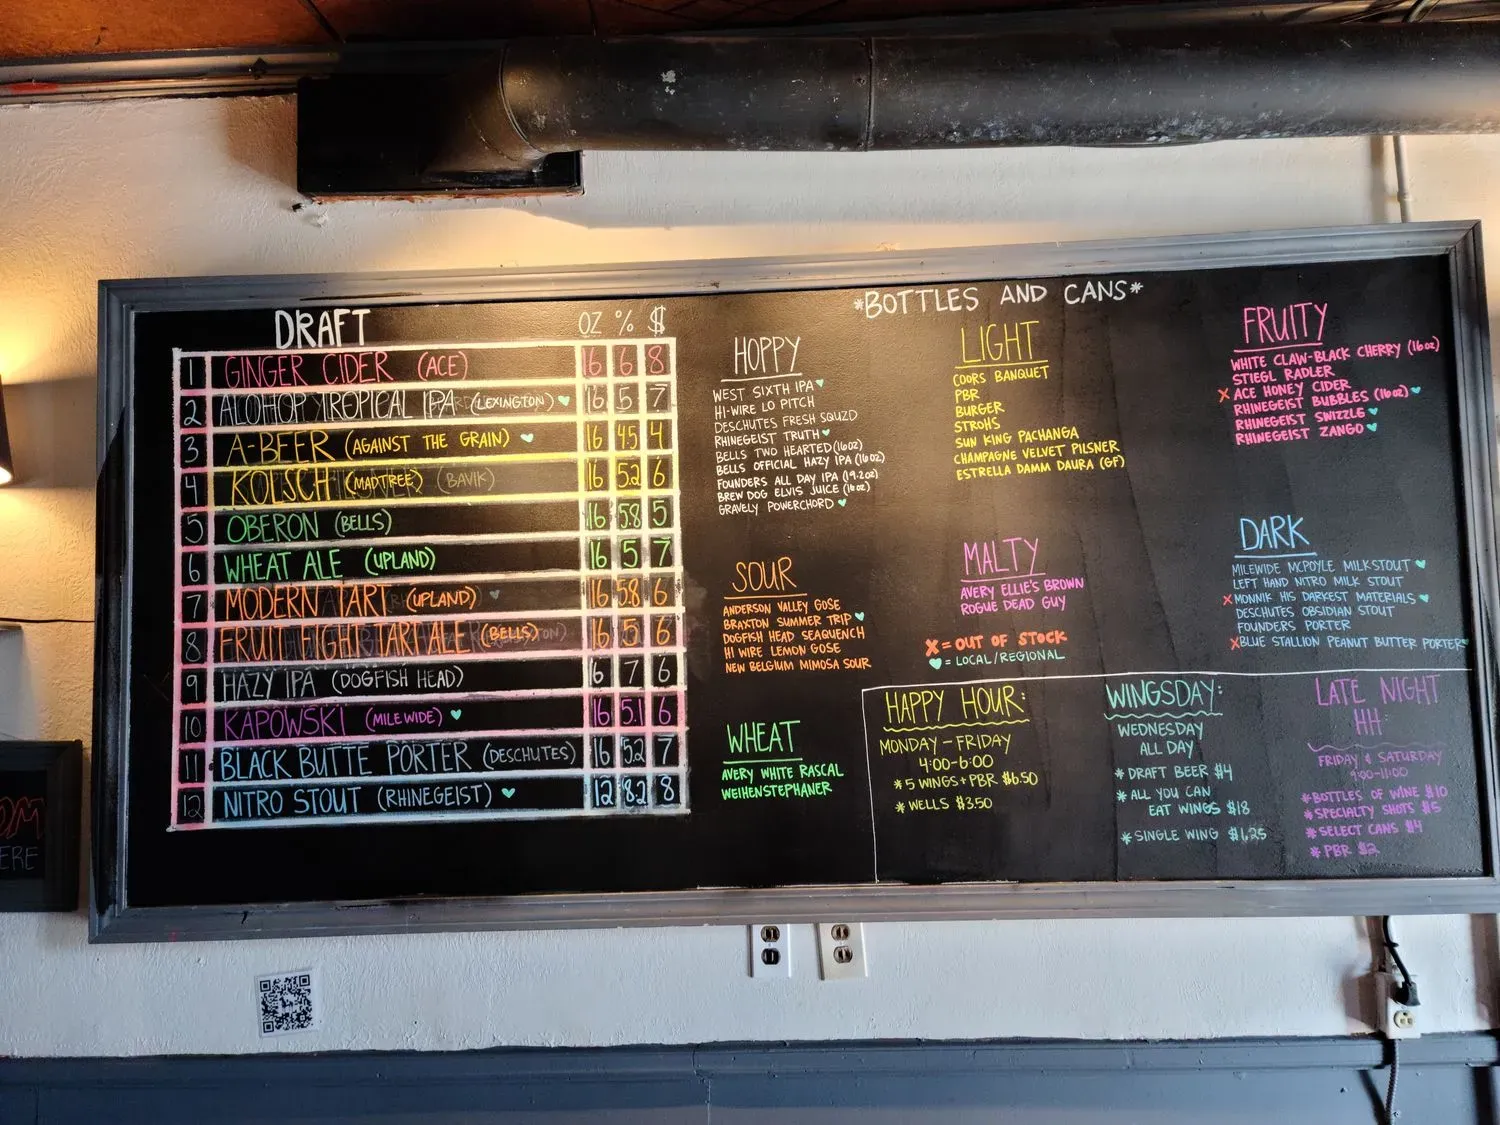 DRAFT OZ % $
1 GINGER CIDER (ACE) 16 6 8
2 ALOHOP TROPICAL IPA (LEXINGTON) 16 5 7
3 A-BEER (AGAINST THE GRAIN) 16 4.5 4
4 KOLSCH (MADTREE) (BAVIK) 16 5.2 6
5 OBERON (BELLS) 16 5.8 5
6 WHEAT ALE (UPLAND) 16 5 7
7 MODERN TART (UPLAND) 16 5.8 6
8 FRUIT FIGHT TART ALE (BELLS) 16 5 6
9 HAZY IPA (DOGFISH HEAD) 16 7 6
10 KAPOWSKI (MILEWIDE) 16 5.1 6
11 BLACK BUTTE PORTER (DESCHUTES) 16 5.2 7
12 NITRO STOUT (RHINEGEIST) 12 8.2 8
*BOTTLES AND CANS*
HOPPY
WEST SIXTH IPA
HI-WIRE LO PITCH
DESCHUTES FRESH SQUZD
RHINEGEIST TRUTH
BELLS TWO HEARTED (16oz)
BELLS OFFICIAL HAZY IPA (16oz)
FOUNDERS ALL DAY IPA (19.2oz)
BREW DOG ELVIS JUICE (16oz)
GRAVELY POWERCHORD
SOUR
ANDERSON VALLEY GOSE
BRAXTON SUMMER TRIP
DOGFISH HEAD SEAQUENCH
HI WIRE LEMON GOSE
NEW BELGIUM MIMOSA SOUR
WHEAT
AVERY WHITE RASCAL
WEIHENSTEPHANER
LIGHT
COORS BANQUET
PBR
BURGER
STROHS
SUN KING PACHANGA
CHAMPAGNE VELVET PILSNER
ESTRELLA DAMM DAURA (GF)
MALTY
AVERY ELLIE'S BROWN
ROGUE DEAD GUY
X = OUT OF STOCK
♥ = LOCAL/REGIONAL
FRUITY
WHITE CLAW-BLACK CHERRY (16oz)
STIEGL RADLER
X ACE HONEY CIDER
RHINEGEIST BUBBLES (16oz)
RHINEGEIST SWIZZLE
RHINEGEIST ZANGO
DARK
MILEWIDE MCPOYLE MILKSTOUT
LEFT HAND NITRO MILK STOUT
X MONNIK HIS DARKEST MATERIALS
DESCHUTES OBSIDIAN STOUT
FOUNDERS PORTER
X BLUE STALLION PEANUT BUTTER PORTER
HAPPY HOUR:
MONDAY-FRIDAY
4:00-6:00
* 5 WINGS + PBR $6.50
* WELLS $3.50
WINGSDAY:
WEDNESDAY
ALL DAY
* DRAFT BEER $4
* ALL YOU CAN
EAT WINGS $18
* SINGLE WING $1.25
LATE NIGHT
HH:
FRIDAY & SATURDAY
9:00-11:00
* BOTTLES OF WINE $10
* SPECIALTY SHOTS $5
* SELECT CANS $4
* PBR $2
OM
ERE